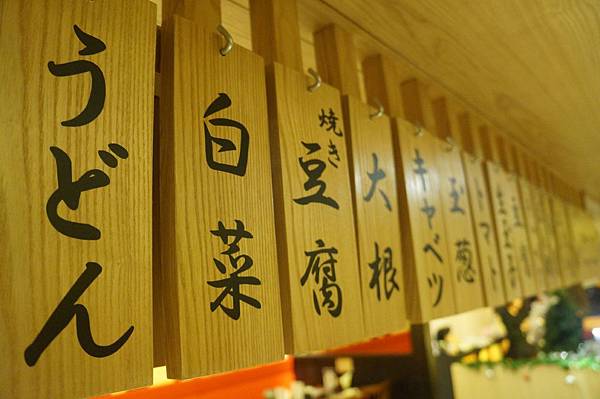 うどん
白菜
焼き豆腐
大根
キャベツ
玉葱
トマト